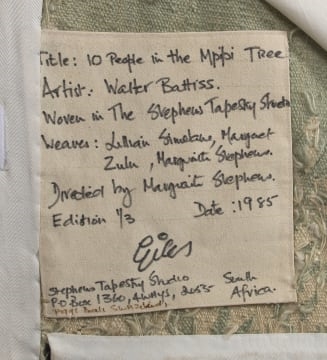 Title: 10 People in the Mpipi Tree
Artist: Walter Battiss.
Woven in The Stephens Tapestry Studio
Weavers: Lillian Margaret
Zulu, Marguerite Stephens.
Directed by Marguerite Stephens.
Edition 1/3 Date: 1985
Stephens Tapestry Studio South
P.O Box 1360, 2055 Africa.